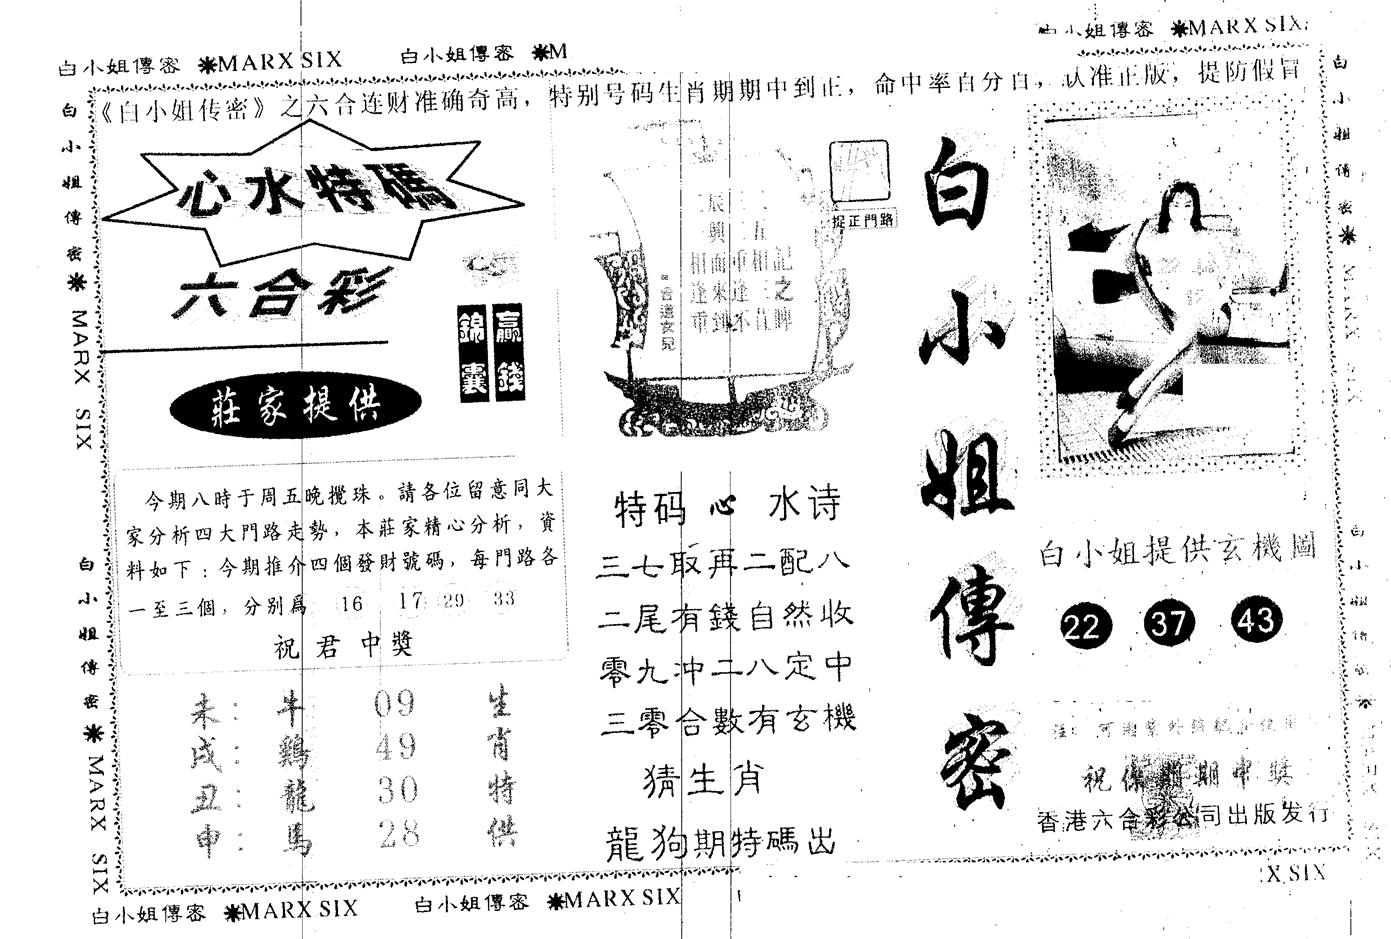 白小姐傳密 ✷MARX SIX
白小姐傳密 ✷M
小姐傳密 ✷MARX SIX
白小姐傳密✷ MARX SIX
白小姐傳密✷ MARX SIX
《白小姐传密》之六合连财准确奇高，特别号码生肖期期中到正，命中率百分百，认准正版，提防假冒
心水特碼
六合彩
贏錢
錦囊
莊家提供
今期八時于周五晚攪珠。請各位留意同大
家分析四大門路走勢，本莊家精心分析，資
料如下：今期推介四個發財號碼，每門路各
一至三個，分别爲 16 17 29 33
祝君中獎
未：牛 09
戌：鷄 49
丑：龍 30
申：馬 28
生肖特供
捉正門路
相記
逢之
重到不
特码心水诗
三七取再二配八
二尾有錢自然收
零九冲二八定中
三零合數有玄機
猜生肖
龍狗期特碼出
白小姐傳密
白小姐提供玄機圖
22 37 43
祝保期期中獎
香港六合彩公司出版发行
白小姐傳密✷ MARX SIX
白小姐傳密 ✷MARX SIX
白小姐傳密 ✷MARX SIX
X SIX